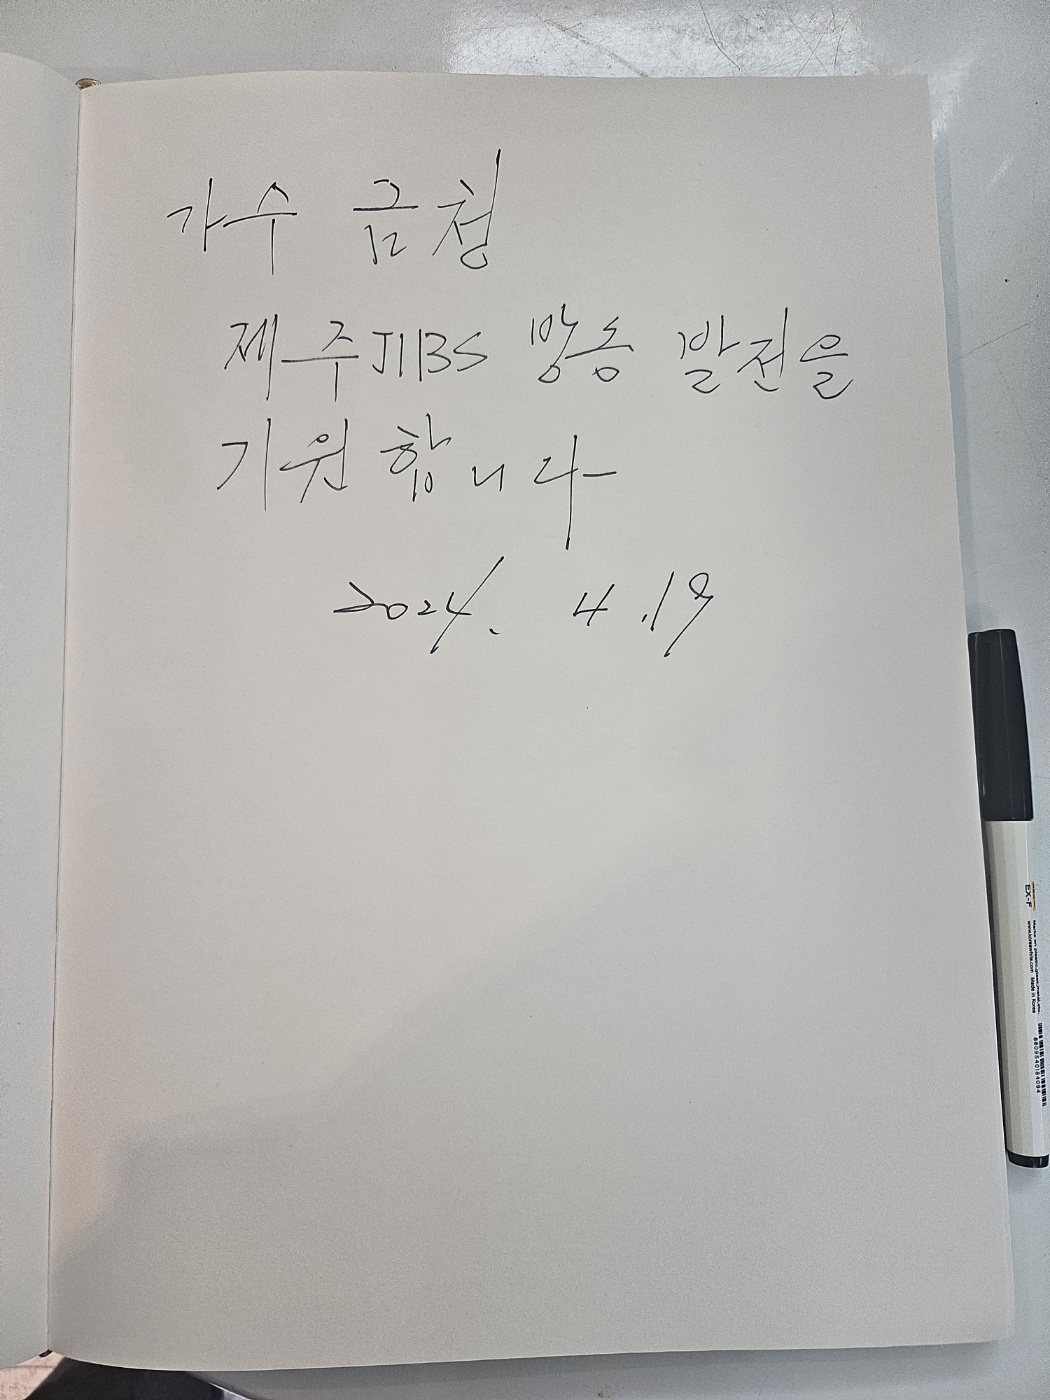 가수 금청
제주JIBS 방송 발전을
기원합니다
2024. 4.19
EX-F
Made in Korea